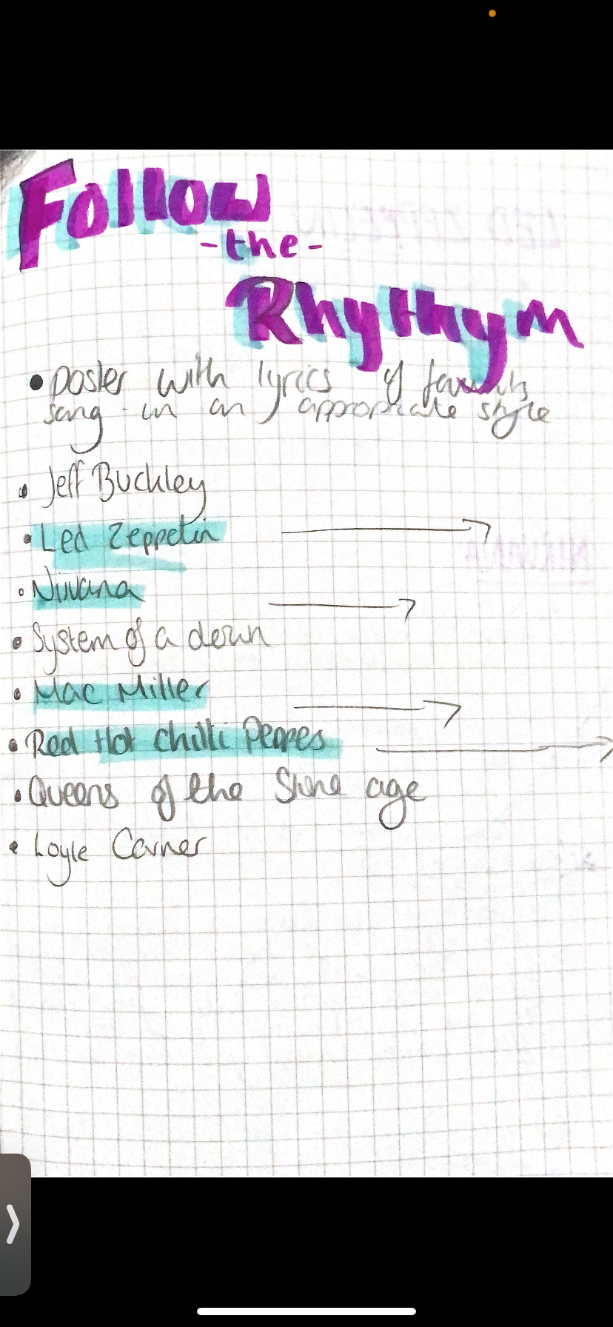 Follow
-the-
Rhythym
• poster with lyrics of favourite
song in an appropriate style
• Jeff Buckley
• Led Zeppelin
• Nirvana
• System of a down
• Mac Miller
• Red Hot Chilli Pepres
• Queens of the Stone age
• Loyle Carner
LED ZEPPELIN
NIRVANA